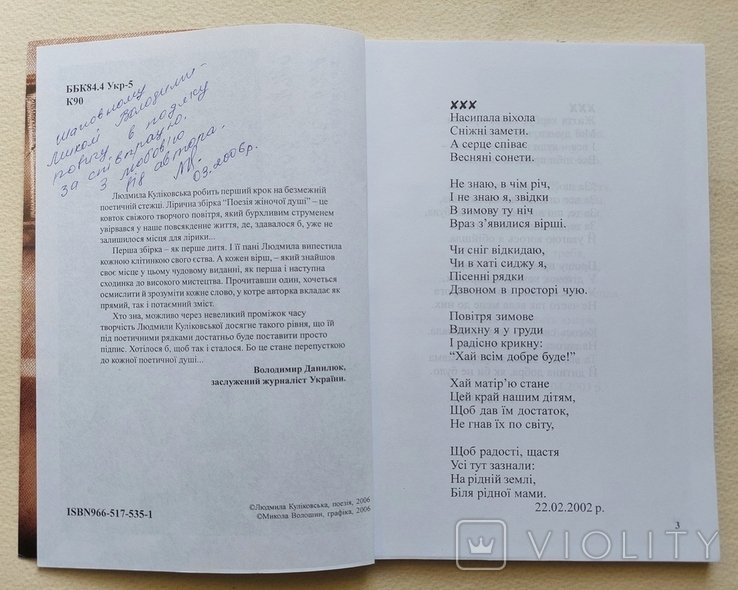 ББК84.4 Укр-5
К90
Шановному
Володими-
ровичу в подяку
за співпрацю.
З любов'ю
від автора.
09.2006р.
Людмила Куліковська робить перший крок на безмежній
поетичній стежці. Лірична збірка “Поезія жіночої душі” – це
ковток свіжого творчого повітря, який бурхливим струменем
увірвався у наше повсякденне життя, де, здавалося б, уже не
залишилося місця для лірики...
Перша збірка – як перше дитя. І її пані Людмила випестила
кожною клітинкою свого єства. А кожен вірш, – який знайшов
своє місце у цьому чудовому виданні, як перша і наступна
сходинка до високого мистецтва. Прочитавши один, хочеться
осмислити й зрозуміти кожне слово, у котре авторка вкладає як
прямий, так і потаємний зміст.
Хто зна, можливо через невеликий проміжок часу
творчість Людмили Куліковської досягне такого рівня, що їй
під поетичними рядками достатньо буде поставити просто
підпис. Хотілося б, щоб так і сталося. Бо це стане перепусткою
до кожної поетичної душі...
Володимир Данилюк,
заслужений журналіст України.
ISBN966-517-535-1
©Людмила Куліковська, поезія, 2006
©Микола Волошин, графіка, 2006
✘✘✘
Насипала віхола
Сніжні замети.
А серце співає
Весняні сонети.
Не знаю, в чім річ,
І не знаю я, звідки
В зимову ту ніч
Враз з’явилися вірші.
Чи сніг відкидаю,
Чи в хаті сиджу я,
Пісенні рядки
Дзвоном в просторі чую.
Повітря зимове
Вдихну я у груди
І радісно крикну:
“Хай всім добре буде!”
Хай матір’ю стане
Цей край нашим дітям,
Щоб дав їм достаток,
Не гнав їх по світу,
Щоб радості, щастя
Усі тут зазнали:
На рідній землі,
Біля рідної мами.
22.02.2002 р.
3
VIOLITY